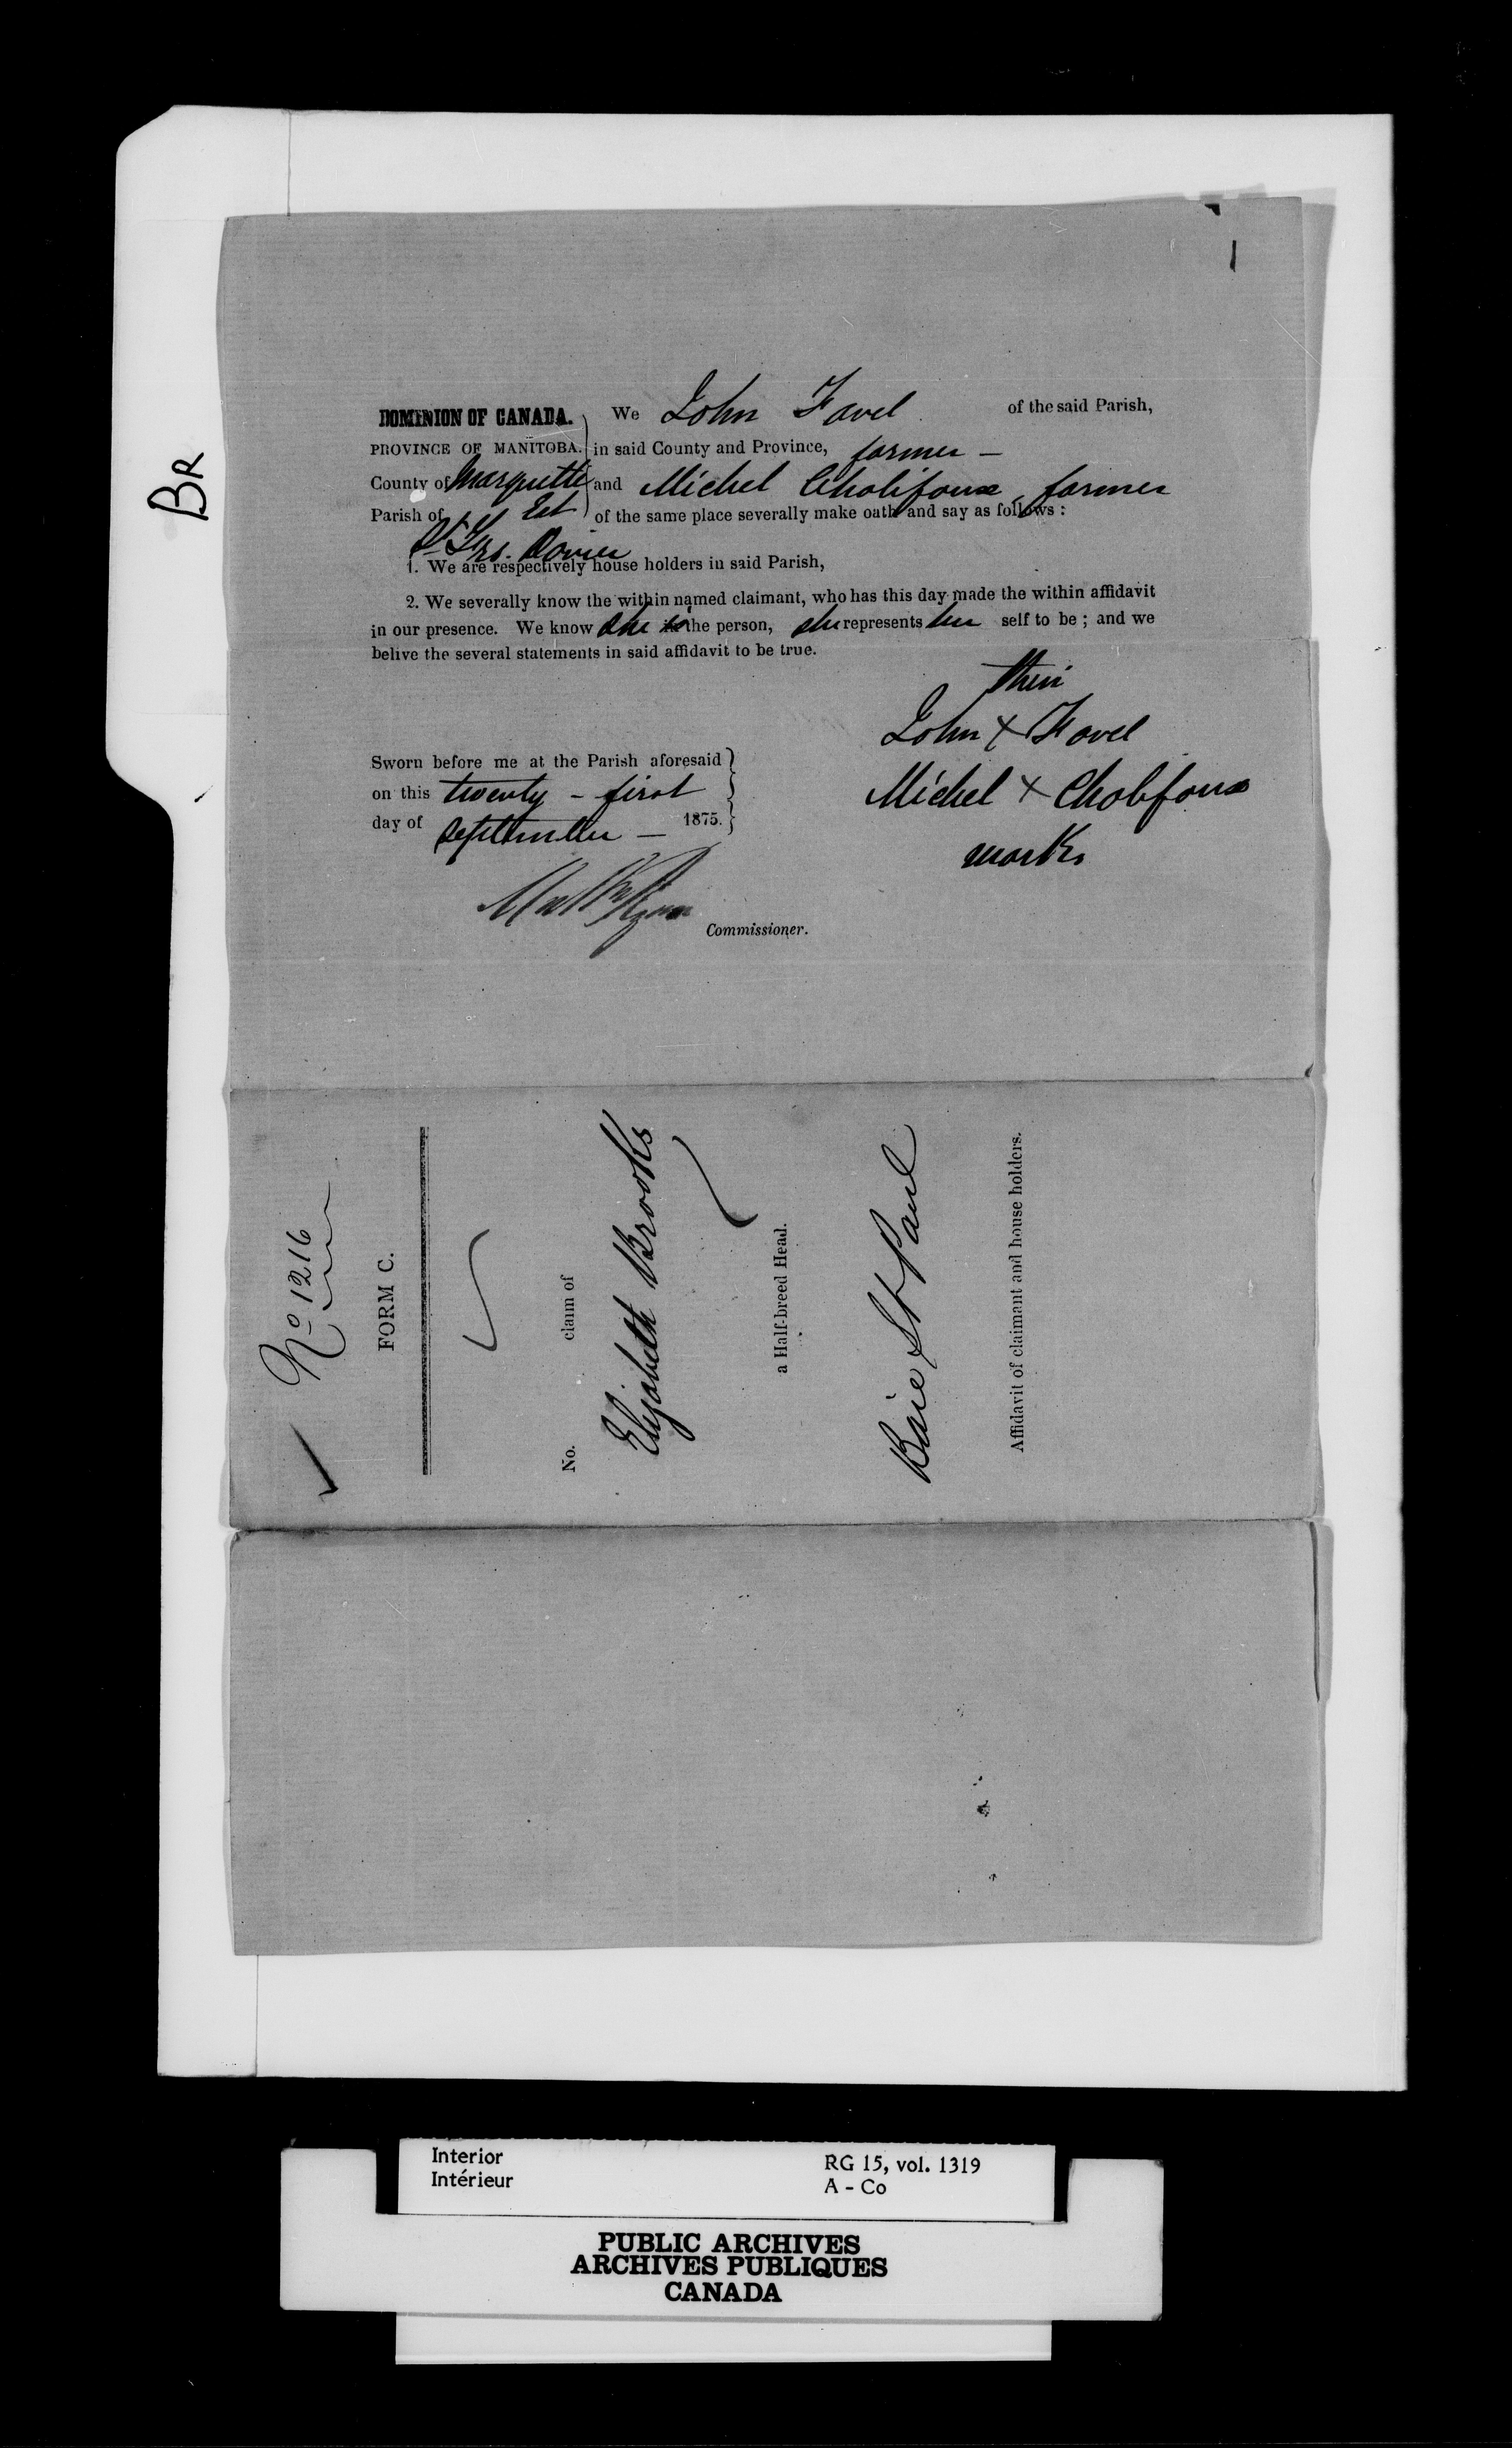 BR
DOMINION OF CANADA. We John Favel of the said Parish,
PROVINCE OF MANITOBA. in said County and Province, farmer –
County of Marquette Est and Michel Chalifoux, farmer
Parish of St. Frs. Xavier of the same place severally make oath and say as follows :
1. We are respectively house holders in said Parish,
2. We severally know the within named claimant, who has this day made the within affidavit
in our presence. We know she is the person, she represents her self to be ; and we
belive the several statements in said affidavit to be true.
their
John X Favel
Michel X Chalifoux
marks
Sworn before me at the Parish aforesaid
on this twenty – first
day of September – 1875.
Commissioner.
No 1216
FORM C.
No. claim of
Elizabeth Brooks
a Half-breed Head.
Baie St Paul
Affidavit of claimant and house holders.
Interior
Intérieur
RG 15, vol. 1319
A – Co
PUBLIC ARCHIVES
ARCHIVES PUBLIQUES
CANADA